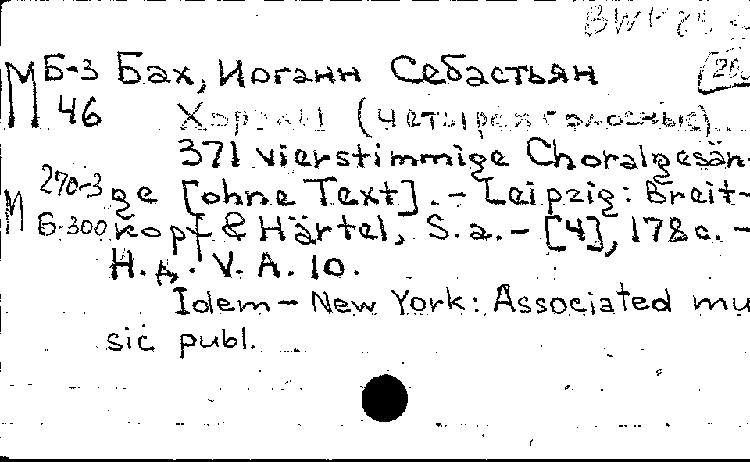 М Б-3 Бах, Иоганн Себастьян
46 Хоралы (четырехголосные)
371 vierstimmige Choralgesän-
М 270-3 ge [ohne Text]. – Leipzig: Breit-
Б-300 kopf & Härtel, S. a. – [4], 178 с. –
Н. д. V. A. 10.
Idem – New York: Associated mu
sic publ.